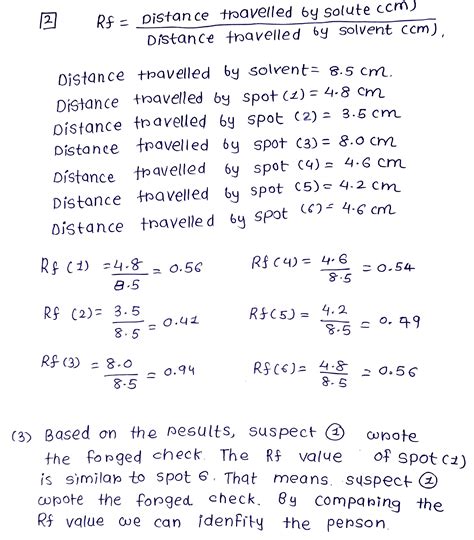 2 Rf = Distance travelled by solute (cm)
Distance travelled by solvent (cm).
Distance travelled by solvent = 8.5 cm.
Distance travelled by spot (1) = 4.8 cm
Distance travelled by spot (2) = 3.5 cm
Distance travelled by spot (3) = 8.0 cm
Distance travelled by spot (4) = 4.6 cm
Distance travelled by spot (5) = 4.2 cm
Distance travelled by spot (6) = 4.6 cm
Rf (1) = 4.8/8.5 = 0.56 Rf (4) = 4.6/8.5 = 0.54
Rf (2) = 3.5/8.5 = 0.41 Rf (5) = 4.2/8.5 = 0.49
Rf (3) = 8.0/8.5 = 0.94 Rf (6) = 4.8/8.5 = 0.56
(3) Based on the results, suspect ① wrote
the forged check. The Rf value of spot (1)
is similar to spot 6. That means, suspect ①
wrote the forged check. By comparing the
Rf value we can idenfity the person.